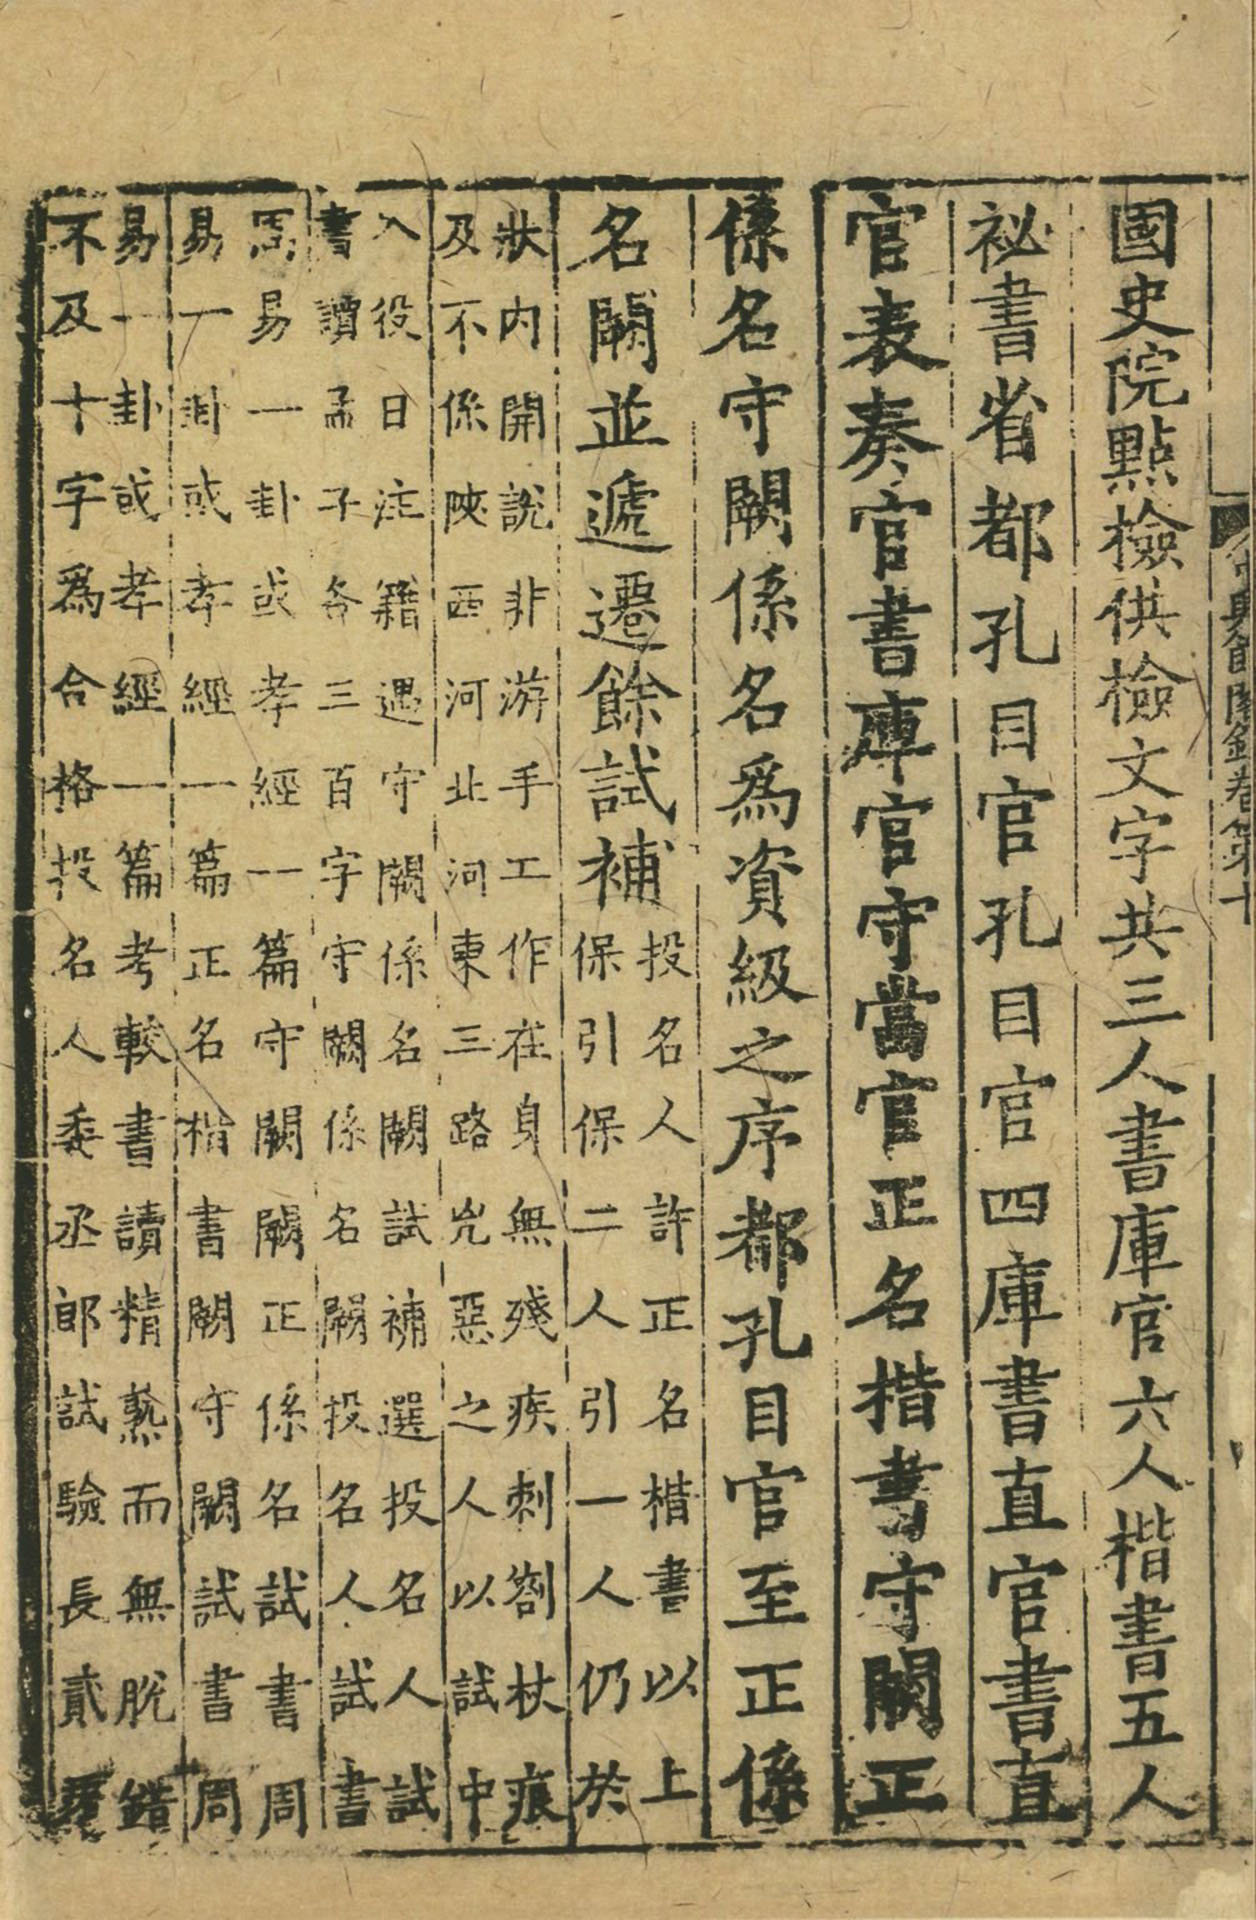 中興館閣錄卷第十
國史院點檢供檢文字共三人書庫官六人楷書五人
祕書省都孔目官孔目官四庫書直官書直
官表奏官書庫官守當官正名楷書守闕正
係名守闕係名爲資級之序都孔目官至正係
名闕並遞遷餘試補
投名人許正名楷書以上
保引保二人引一人仍於
狀內開說非游手工作在身無殘疾刺劄杖痕
及不係陝西河北河東三路兇惡之人以試中
入役日注籍遇守闕係名闕試補選投名人試
書讀孟子各三百字守闕係名闕投名人試書
周易一卦或孝經一篇守闕闕正係名試書周
易一卦或孝經一篇正名楷書闕守闕試書周
易一卦或孝經一篇考較書讀精熟而無脫錯
不及十字爲合格投名人委丞郎試驗長貳覆